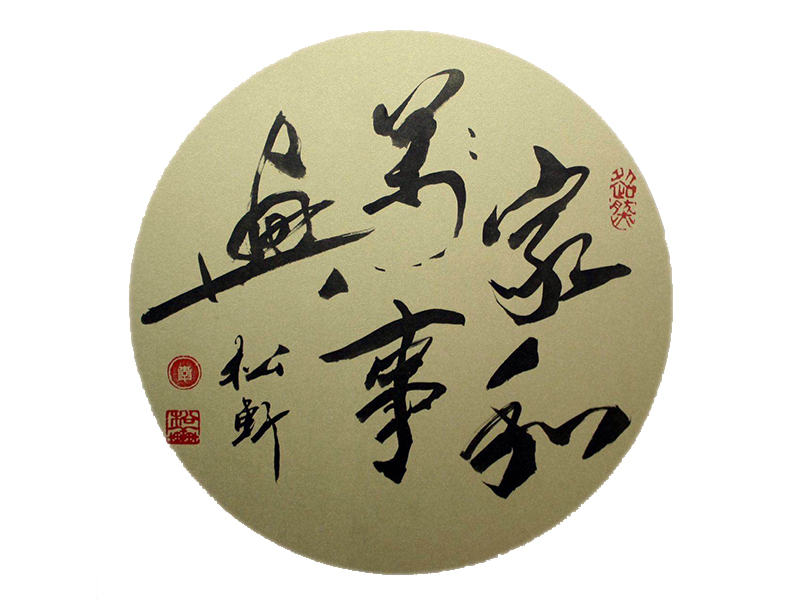 家和
萬事
興
松軒